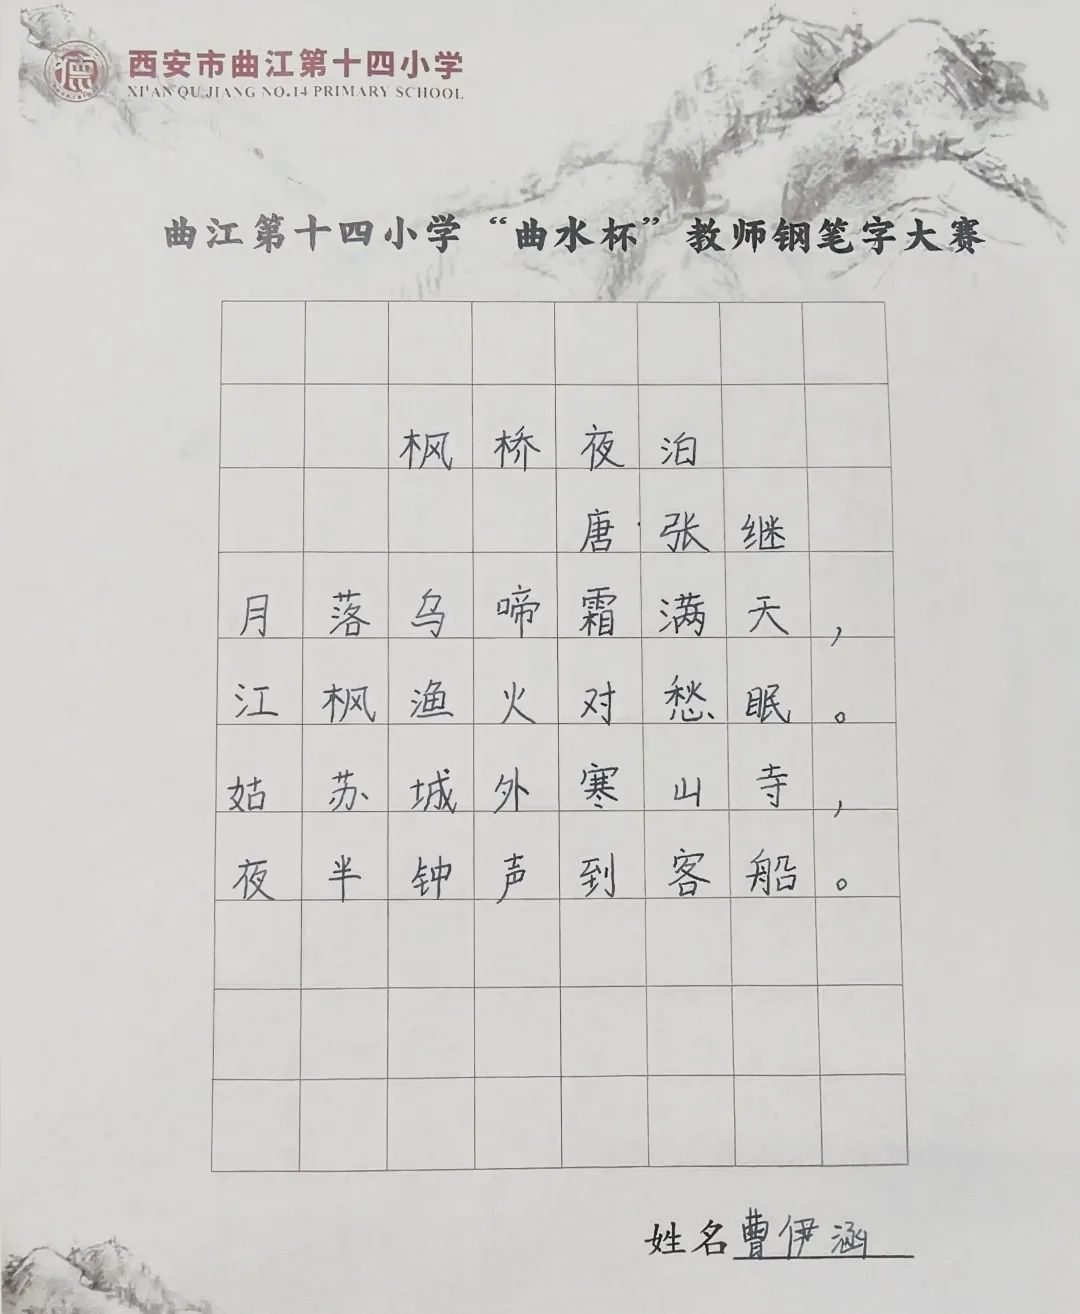 西安市曲江第十四小学
XI'AN QU JIANG NO.14 PRIMARY SCHOOL
曲江第十四小学“曲水杯”教师钢笔字大赛
枫桥夜泊
唐·张继
月落乌啼霜满天，
江枫渔火对愁眠。
姑苏城外寒山寺，
夜半钟声到客船。
姓名曹伊涵